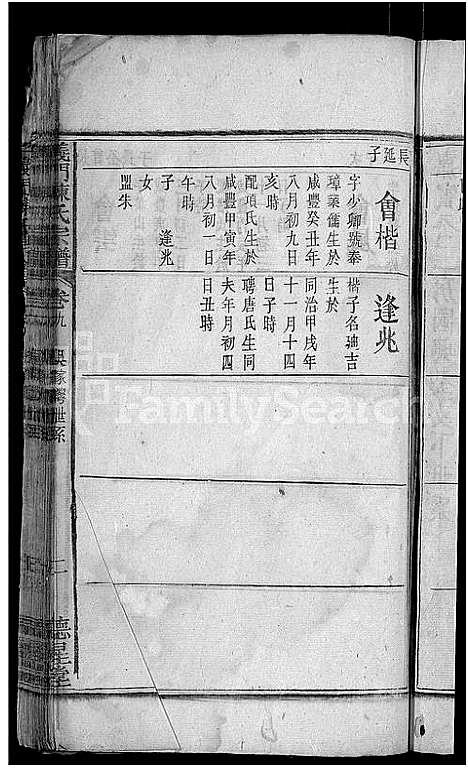 長延子
會楷
字少卿號泰
璋業儒生於
咸豐癸丑年
八月初九日
亥時
配項氏生於
咸豐甲寅年
八月初一日
午時
子 逢兆
女
盟朱
逢兆
楷子名迪吉
生於
同治甲戌年
十一月十四
日子時
聘唐氏生同
夫年月初四
日丑時
義門陳氏宗譜
卷九
世系
二
德星堂
FamilySearch